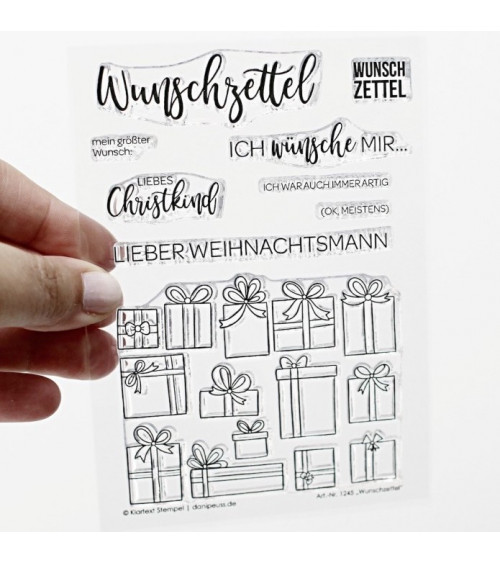 Wunschzettel
WUNSCH
ZETTEL
mein größter
Wunsch:
ICH wünsche MIR...
LIEBES
Christkind
ICH WAR AUCH IMMER ARTIG
(OK, MEISTENS)
LIEBER WEIHNACHTSMANN
© Klartext Stempel | danipeuss.de
Art.-Nr. 1245 „Wunschzettel"